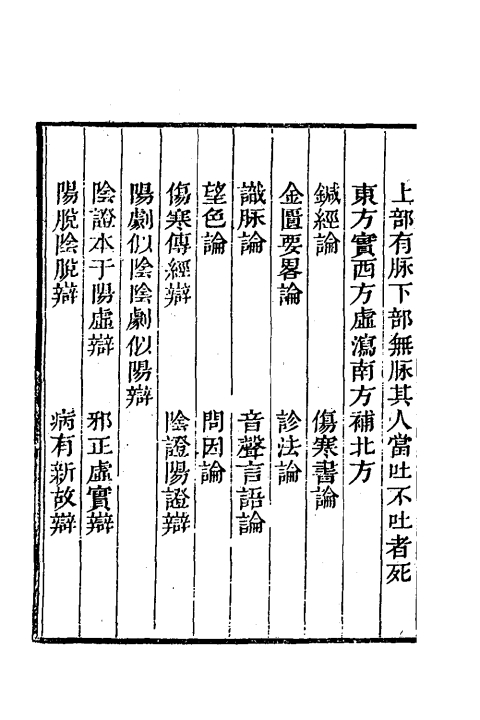 上部有脉下部無脉其人當吐不吐者死
東方實西方虛瀉南方補北方
鍼經論　傷寒書論
金匱要畧論　診法論
識脉論　音聲言語論
望色論　問因論
傷寒傳經辯　陰證陽證辯
陽劇似陰陰劇似陽辯
陰證本于陽虛辯　邪正虛實辯
陽脫陰脫辯　病有新故辯